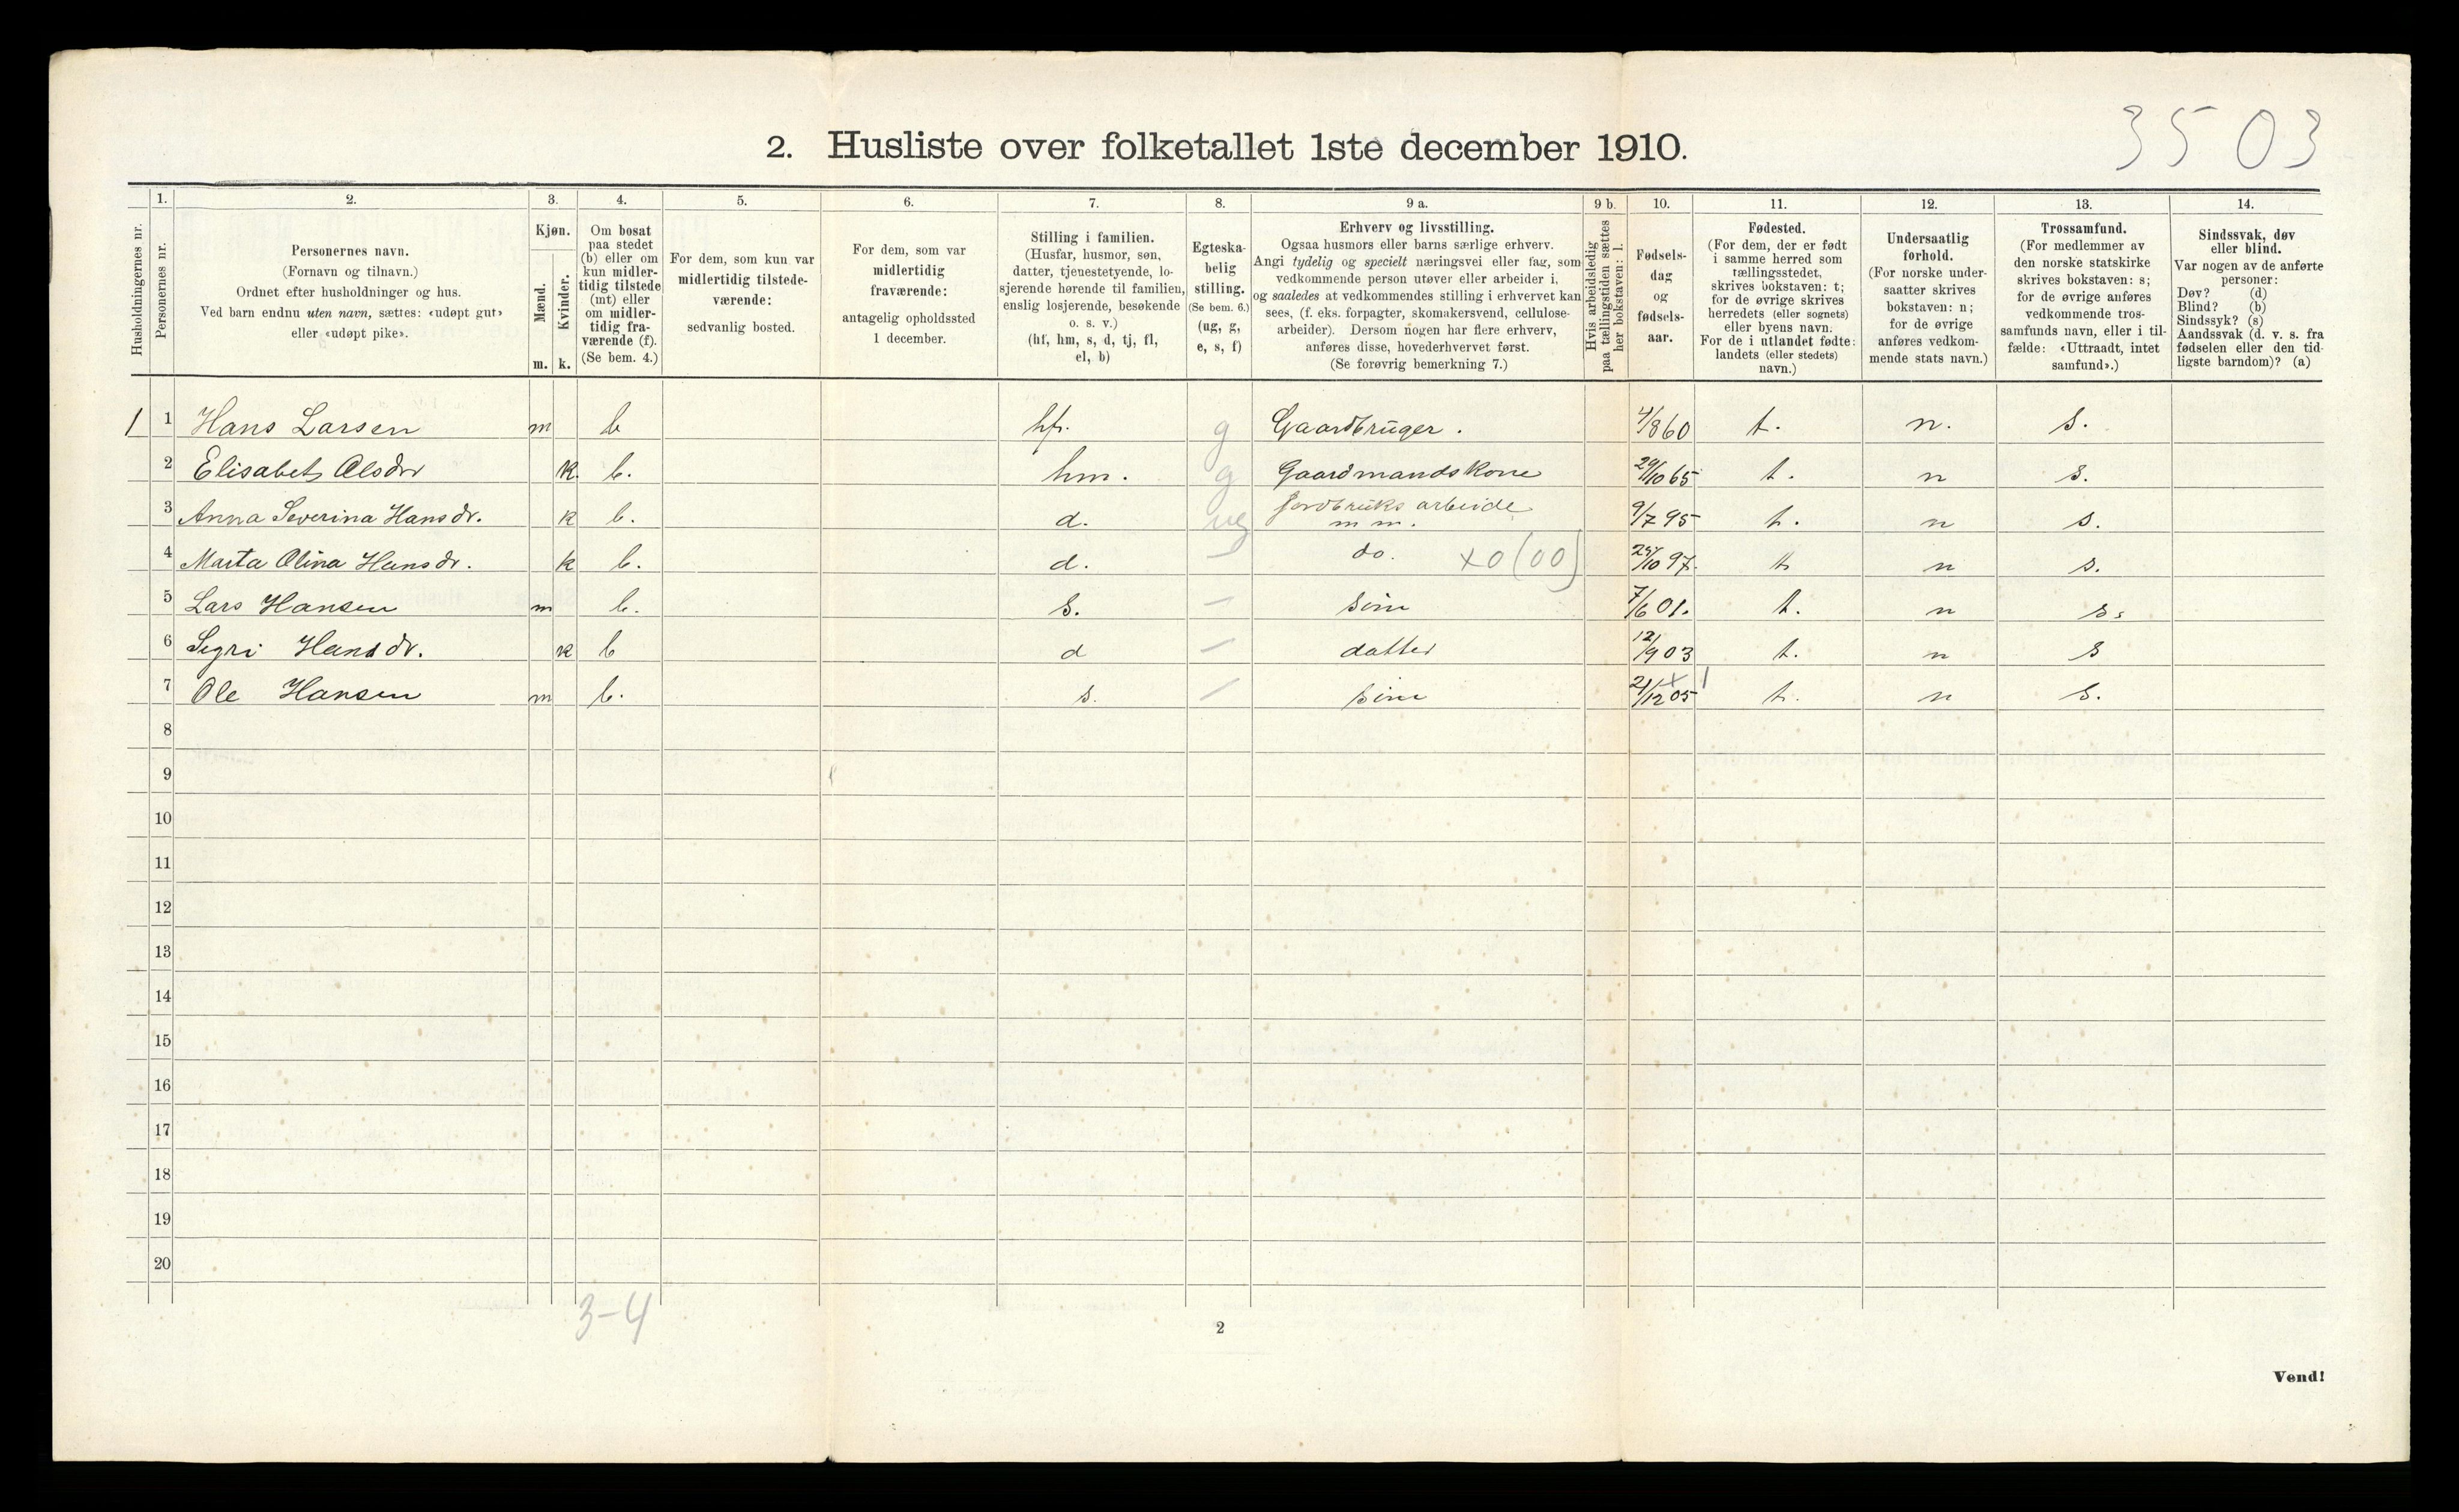 35 03
2. Husliste over folketallet 1ste december 1910.
Husholdningernes nr.
1.
Personernes nr.
2.
Personernes navn.
(Fornavn og tilnavn.)
Ordnet efter husholdninger og hus.
Ved barn endnu uten navn, sættes: «udøpt gut»
eller «udøpt pike».
3.
Kjøn.
Mænd.
m.
Kvinder.
k.
4.
Om bosat
paa stedet
(b) eller om
kun midler-
tidig tilstede
(mt) eller
om midler-
tidig fra-
værende (f).
(Se bem. 4.)
5.
For dem, som kun var
midlertidig tilstede-
værende:
sedvanlig bosted.
6.
For dem, som var
midlertidig
fraværende:
antagelig opholdssted
1 december.
7.
Stilling i familien.
(Husfar, husmor, søn,
datter, tjenestetyende, lo-
sjerende hørende til familien,
enslig losjerende, besøkende
o. s. v.)
(hf, hm, s, d, tj, fl,
el, b)
8.
Egteska-
belig
stilling.
(Se bem. 6.)
(ug, g,
e, s, f)
9 a.
Erhverv og livsstilling.
Ogsaa husmors eller barns særlige erhverv.
Angi tydelig og specielt næringsvei eller fag, som
vedkommende person utøver eller arbeider i,
og saaledes at vedkommendes stilling i erhvervet kan
sees, (f. eks. forpagter, skomakersvend, cellulose-
arbeider). Dersom nogen har flere erhverv,
anføres disse, hovederhvervet først.
(Se forøvrig bemerkning 7.)
9 b.
Hvis arbeidsledig
paa tællingstiden sættes
her bokstaven: l.
10.
Fødsels-
dag
og
fødsels-
aar.
11.
Fødested.
(For dem, der er født
i samme herred som
tællingsstedet,
skrives bokstaven: t;
for de øvrige skrives
herredets (eller sognets)
eller byens navn.
For de i utlandet fødte:
landets (eller stedets)
navn.)
12.
Undersaatlig
forhold.
(For norske under-
saatter skrives
bokstaven: n;
for de øvrige
anføres vedkom-
mende stats navn.)
13.
Trossamfund.
(For medlemmer av
den norske statskirke
skrives bokstaven: s;
for de øvrige anføres
vedkommende tros-
samfunds navn, eller i til-
fælde: «Uttraadt, intet
samfund».)
14.
Sindssvak, døv
eller blind.
Var nogen av de anførte
personer:
Døv? (d)
Blind? (b)
Sindssyk? (s)
Aandssvak (d. v. s. fra
fødselen eller den tid-
ligste barndom)? (a)
1 1 Hans Larsen m b hf. g Gaardbrüger. 4/8 60 t. n. s.
2 Elisabet Olsdr k. b. hm. g Gaardmandskone 29/10 65 t. n s.
3 Anna Severina Hansdr. k b. d. ug Jordbrüks arbeide m m. 9/7 95 t. n s.
4 Marta Olina Hansdr. k b. d. — do. x0 (00) 10 97. t n s.
5 Lars Hansen m b. s. — sön 7/6 01. t. n s.
6 Segri Hansdr. k b d — datter 12/9 03 t. n s
7 Ole Hansen m b. s. — sön 21/12 05 t. n s.
8
9
10
11
12
13
14
15
16
17
18
19
20
3-4
2
Vend!